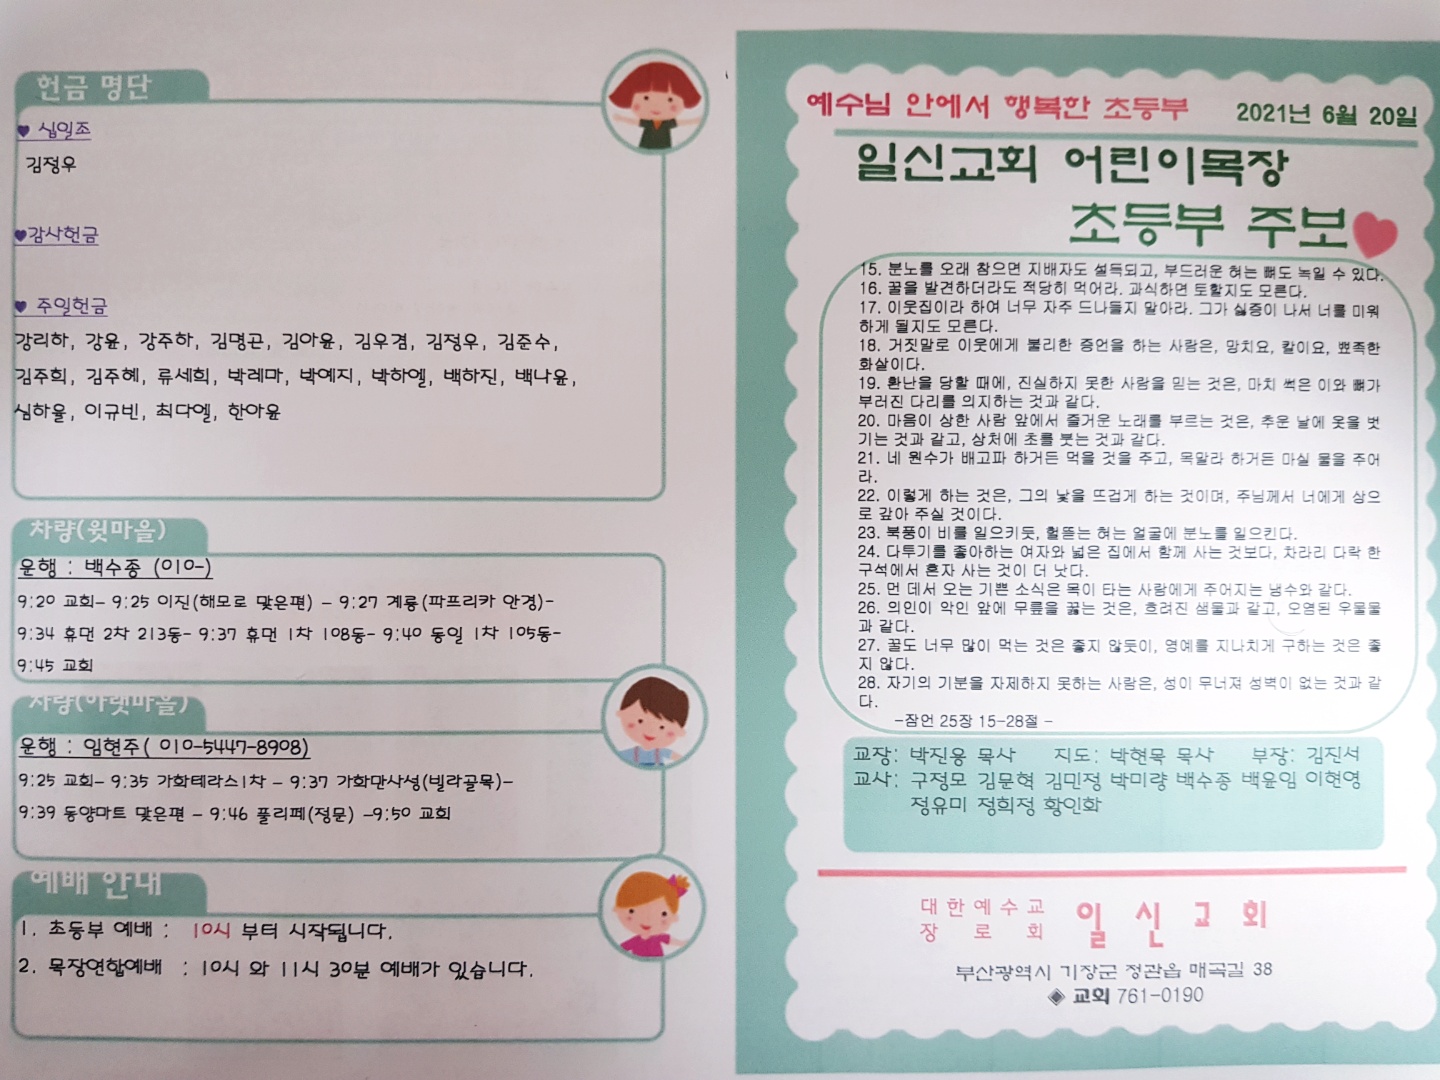 헌금 명단
♥ 십일조
김정우
♥감사헌금
♥ 주일헌금
강리하, 강윤, 강주하, 김명곤, 김아윤, 김우겸, 김정우, 김준수,
김주희, 김주혜, 류세희, 박레마, 박예지, 박하엘, 백하진, 백나윤,
심하율, 이규빈, 최다엘, 한아윤
차량(윗마을)
운행 : 백수종 (010-)
9:20 교회- 9:25 이진(해모로 맞은편) - 9:27 계룡(파프리카 안경)-
9:34 휴먼 2차 213동- 9:37 휴먼 1차 108동- 9:40 동일 1차 105동-
9:45 교회
차량(아랫마을)
운행 : 임현주( 010-5447-8908)
9:25 교회- 9:35 가화테라스1차 - 9:37 가화만사성(빌라골목)-
9:39 동양마트 맞은편 - 9:46 풀리페(정문) -9:50 교회
예배 안내
1. 초등부 예배 : 10시 부터 시작됩니다.
2. 목장연합예배 : 10시 와 11시 30분 예배가 있습니다.
예수님 안에서 행복한 초등부 2021년 6월 20일
일신교회 어린이목장
초등부 주보
15. 분노를 오래 참으면 지배자도 설득되고, 부드러운 혀는 뼈도 녹일 수 있다.
16. 꿀을 발견하더라도 적당히 먹어라. 과식하면 토할지도 모른다.
17. 이웃집이라 하여 너무 자주 드나들지 말아라. 그가 싫증이 나서 너를 미워
하게 될지도 모른다.
18. 거짓말로 이웃에게 불리한 증언을 하는 사람은, 망치요, 칼이요, 뾰족한
화살이다.
19. 환난을 당할 때에, 진실하지 못한 사람을 믿는 것은, 마치 썩은 이와 뼈가
부러진 다리를 의지하는 것과 같다.
20. 마음이 상한 사람 앞에서 즐거운 노래를 부르는 것은, 추운 날에 옷을 벗
기는 것과 같고, 상처에 초를 붓는 것과 같다.
21. 네 원수가 배고파 하거든 먹을 것을 주고, 목말라 하거든 마실 물을 주어
라.
22. 이렇게 하는 것은, 그의 낯을 뜨겁게 하는 것이며, 주님께서 너에게 상으
로 갚아 주실 것이다.
23. 북풍이 비를 일으키듯, 헐뜯는 혀는 얼굴에 분노를 일으킨다.
24. 다투기를 좋아하는 여자와 넓은 집에서 함께 사는 것보다, 차라리 다락 한
구석에서 혼자 사는 것이 더 낫다.
25. 먼 데서 오는 기쁜 소식은 목이 타는 사람에게 주어지는 냉수와 같다.
26. 의인이 악인 앞에 무릎을 꿇는 것은, 흐려진 샘물과 같고, 오염된 우물물
과 같다.
27. 꿀도 너무 많이 먹는 것은 좋지 않듯이, 영예를 지나치게 구하는 것은 좋
지 않다.
28. 자기의 기분을 자제하지 못하는 사람은, 성이 무너져 성벽이 없는 것과 같
다.
-잠언 25장 15-28절 -
교장: 박진용 목사 지도: 박현목 목사 부장: 김진서
교사: 구정모 김문혁 김민정 박미량 백수종 백윤임 이현영
정유미 정희정 황인화
대한예수교
장로회 일신교회
부산광역시 기장군 정관읍 매곡길 38
◈ 교회 761-0190